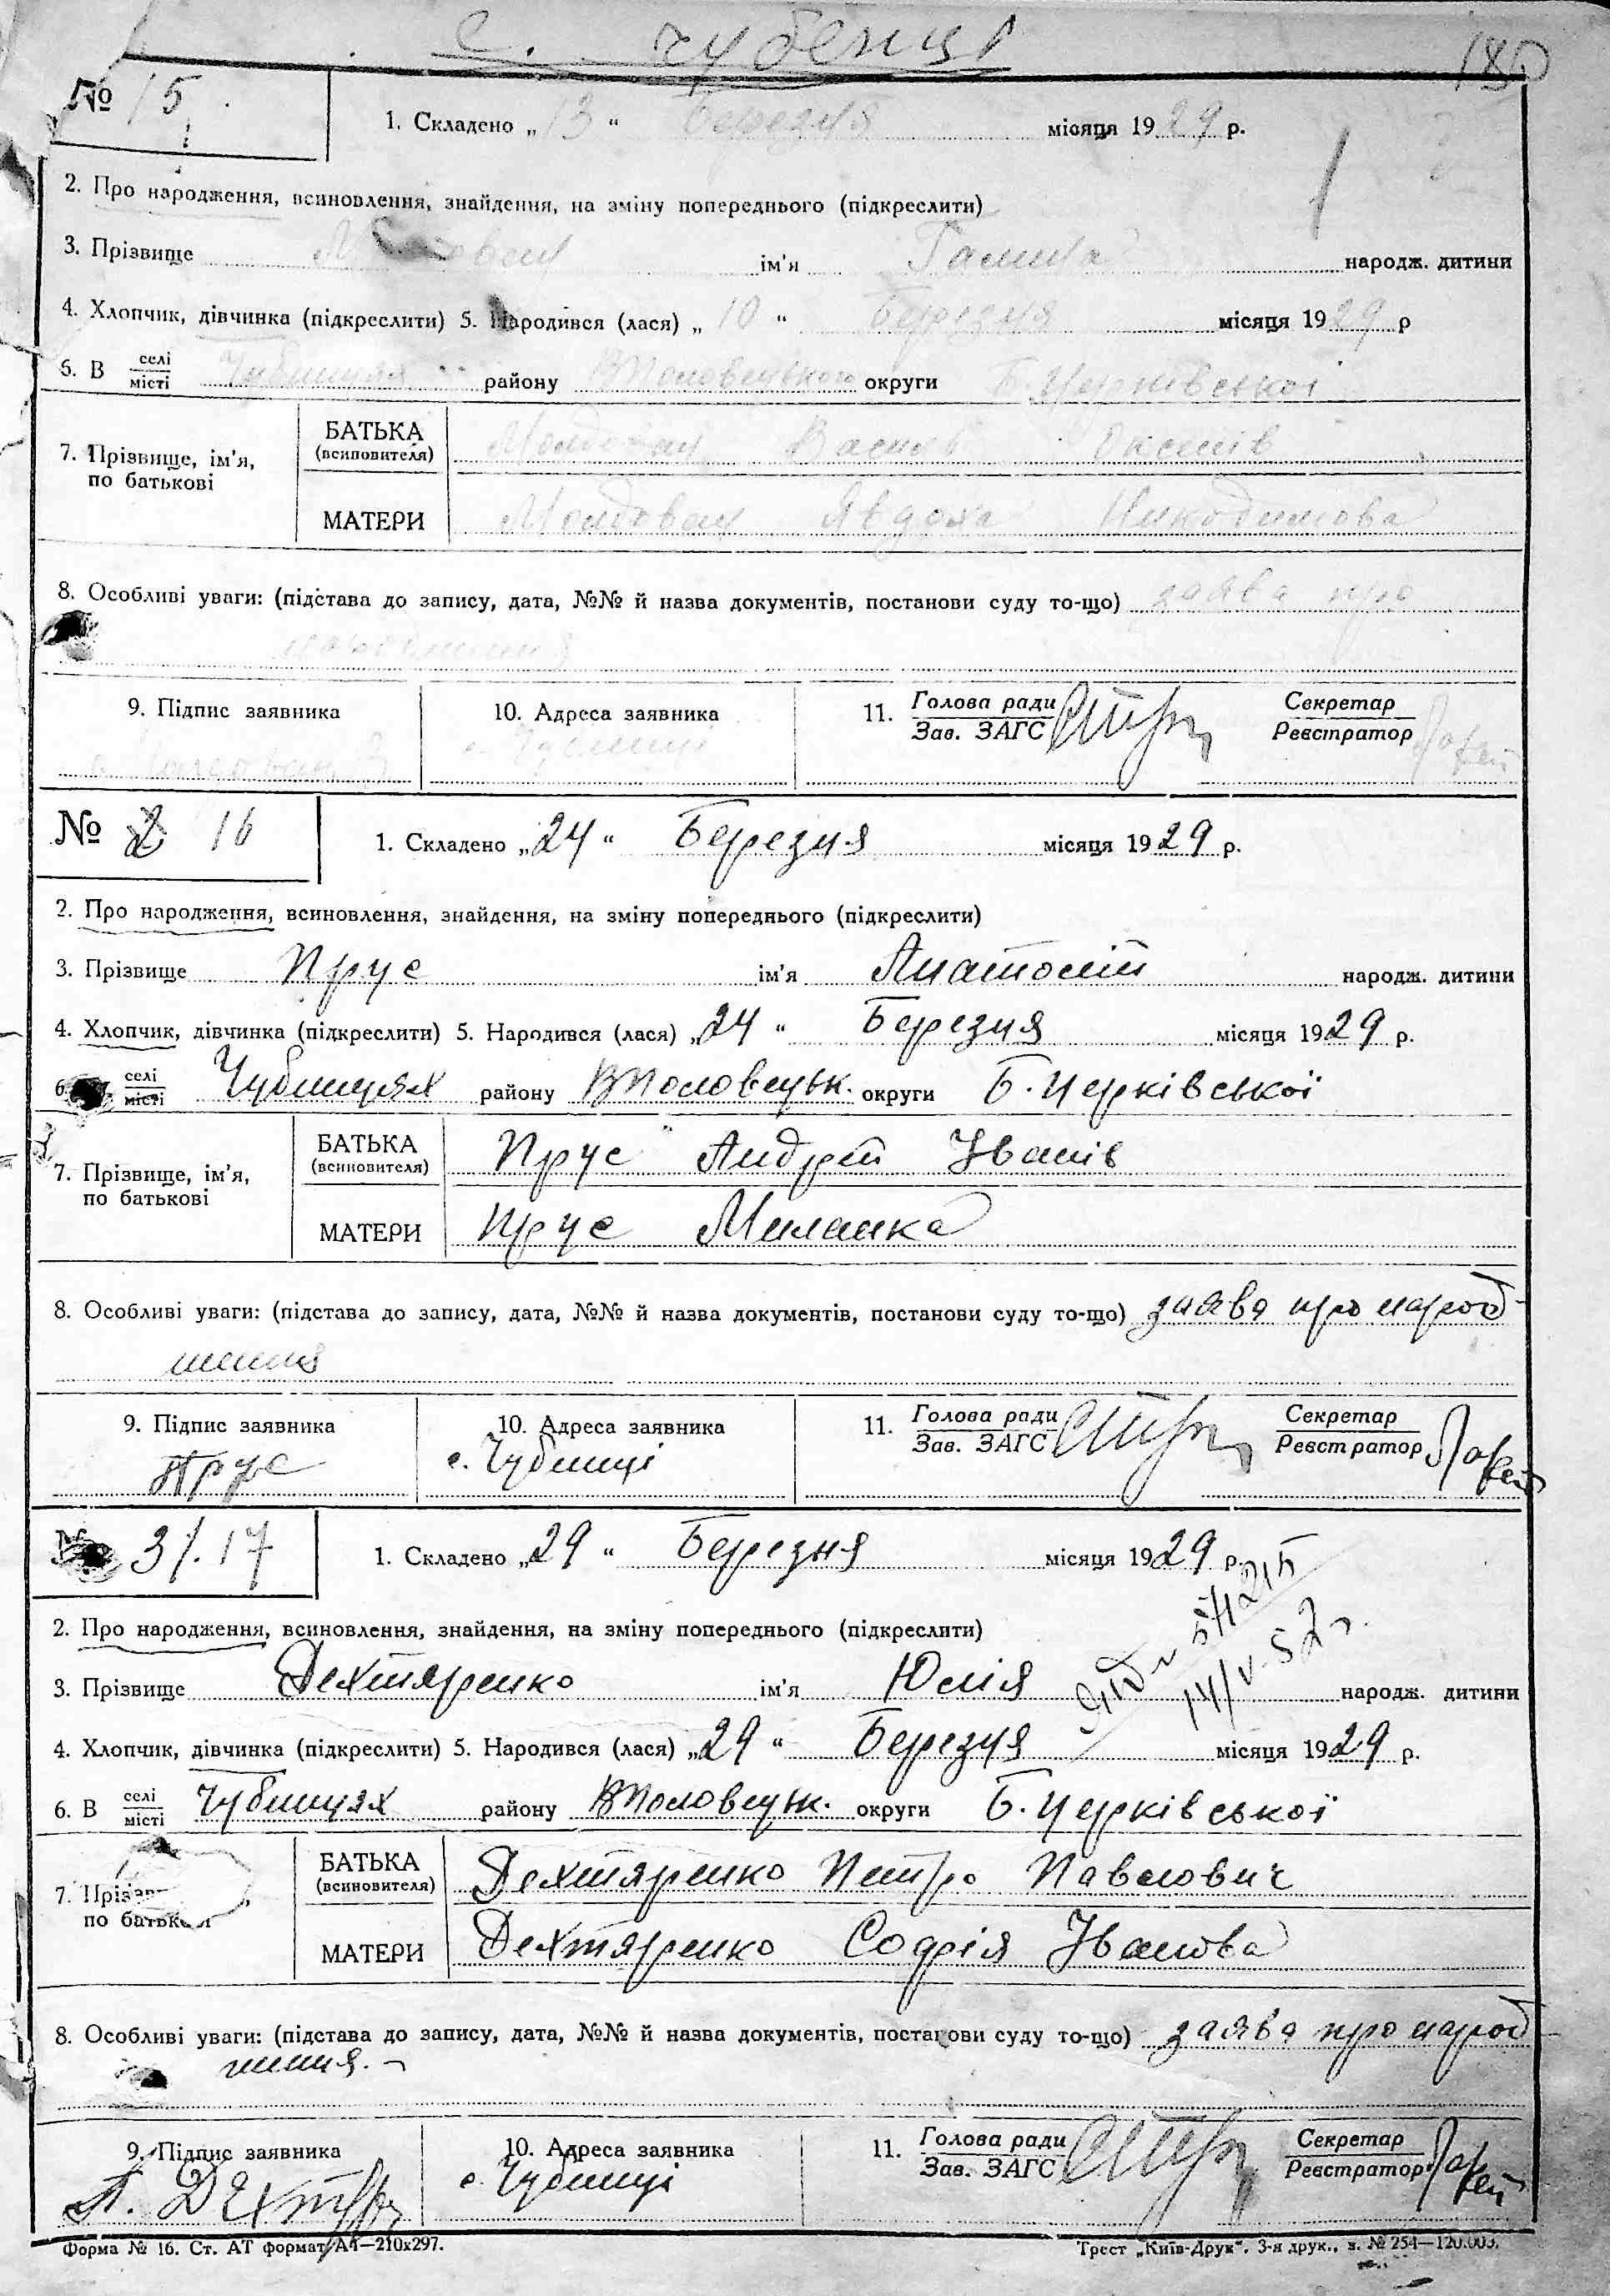 с. Чубенці
180
№ 15
1. Складено „13“ Березня місяця 1929 р.
2. Про народження, всиновлення, знайдення, на зміну попереднього (підкреслити)
3. Прізвище ім'я Галина народж. дитини
4. Хлопчик, дівчинка (підкреслити) 5. Народився (лася) „10“ Березня місяця 1929 р
6. В селі/місті Чубинцях району ВПоловецького округи Б. Церківської
7. Прізвище, ім'я, по батькові
БАТЬКА (всиновителя) Молдован Василь
МАТЕРИ Молдован Явдоха Никодимова
8. Особливі уваги: (підстава до запису, дата, №№ й назва документів, постанови суду то-що) заява про
народження
9. Підпис заявника
10. Адреса заявника
с. Чубинці
11. Голова ради/Зав. ЗАГС
Секретар/Реєстратор
№ 2 16
1. Складено „24“ Березня місяця 1929 р.
2. Про народження, всиновлення, знайдення, на зміну попереднього (підкреслити)
3. Прізвище Прус ім'я Анатолій народж. дитини
4. Хлопчик, дівчинка (підкреслити) 5. Народився (лася) „24“ Березня місяця 1929 р.
6. селі/місті Чубинцях району ВПоловецьк. округи Б. Церківської
7. Прізвище, ім'я, по батькові
БАТЬКА (всиновителя) Прус Андрій Іванів
МАТЕРИ Прус Миланка
8. Особливі уваги: (підстава до запису, дата, №№ й назва документів, постанови суду то-що) заява про народ-
ження
9. Підпис заявника
Прус
10. Адреса заявника
с. Чубинці
11. Голова ради/Зав. ЗАГС
Секретар/Реєстратор
№ 3/. 17
1. Складено „29“ Березня місяця 1929 р.
2. Про народження, всиновлення, знайдення, на зміну попереднього (підкреслити)
14/V-52г.
3. Прізвище Дехтяренко ім'я Юлія народж. дитини
4. Хлопчик, дівчинка (підкреслити) 5. Народився (лася) „29“ Березня місяця 1929 р.
6. В селі/місті Чубинцях району ВПоловецьк. округи Б. Церківської
7. по батькові
БАТЬКА (всиновителя) Дехтяренко Петро Павлович
МАТЕРИ Дехтяренко Софія Іванова
8. Особливі уваги: (підстава до запису, дата, №№ й назва документів, постанови суду то-що) заява про народ-
ження. -
9. Підпис заявника
10. Адреса заявника
с. Чубинці
11. Голова ради/Зав. ЗАГС
Секретар/Реєстратор
Форма № 16. Ст. АТ формат А4—210х297.
Трест „Київ-Друк“, 3-я друк., з. № 254—120.003.